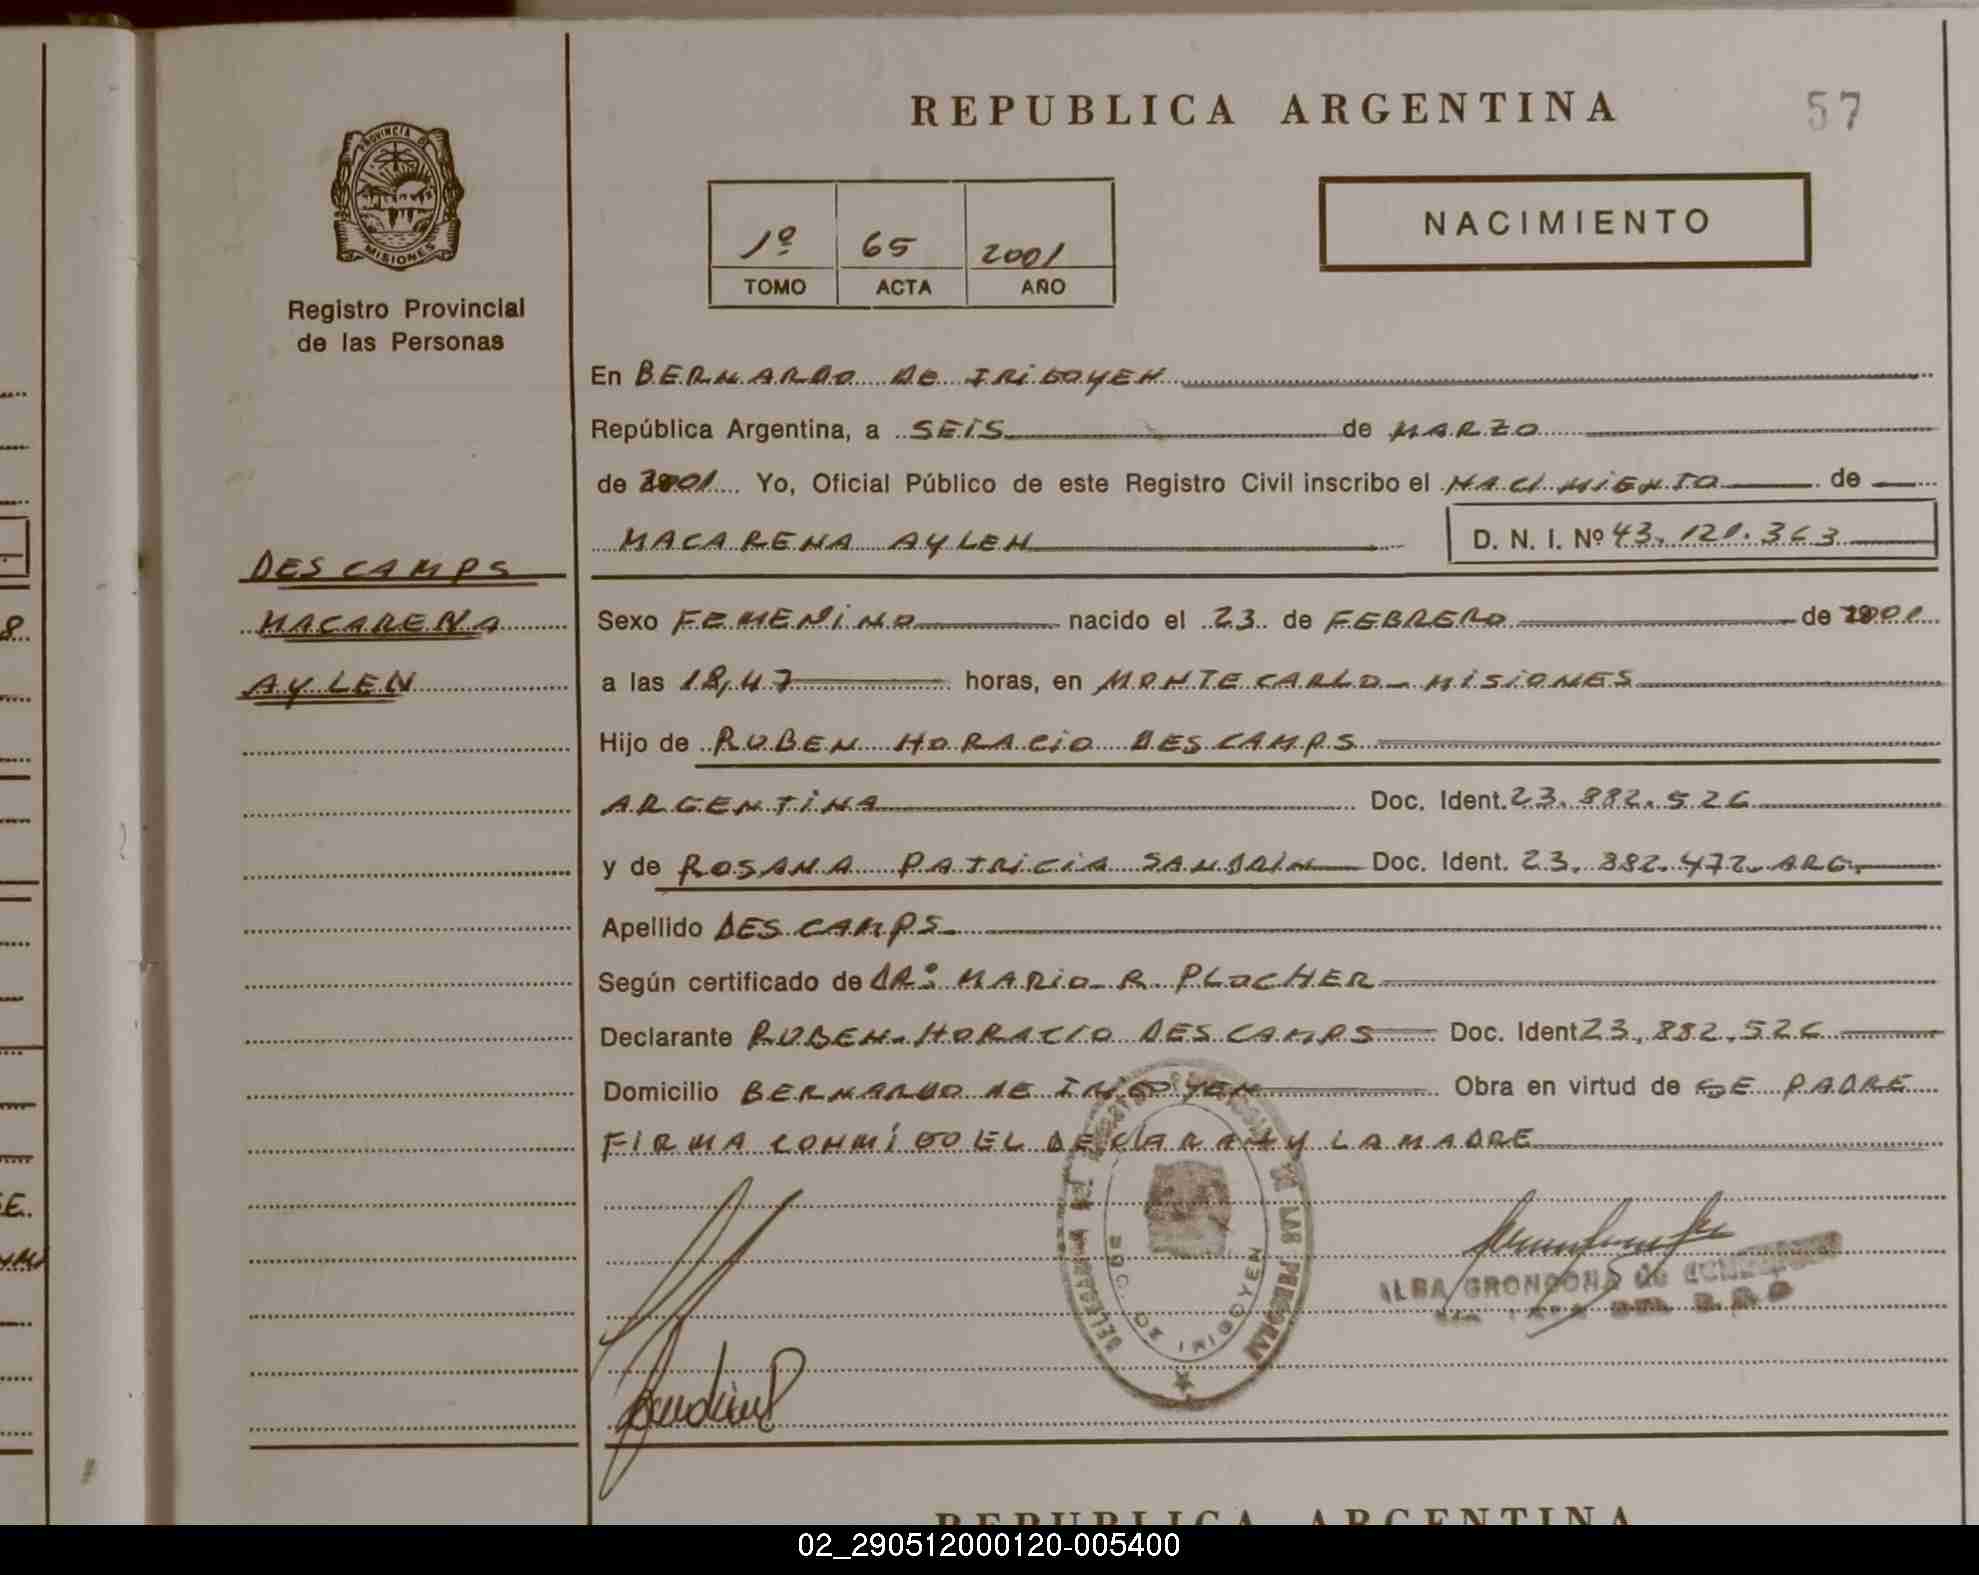 REPUBLICA ARGENTINA
57
PROVINCIA DE
MISIONES
Registro Provincial
de las Personas
1º 65 2001
TOMO ACTA AÑO
NACIMIENTO
En BERNARDO DE IRIGOYEN
República Argentina, a SEIS de MARZO
de 2001 Yo, Oficial Público de este Registro Civil inscribo el NACIMIENTO de
MACARENA AYLEN
D. N. I. Nº 43.120.363
DESCAMPS
MACARENA
AYLEN
Sexo FEMENINO nacido el 23 de FEBRERO de 2001
a las 18,47 horas, en MONTECARLO - MISIONES
Hijo de RUBEN HORACIO DESCAMPS
ARGENTINA Doc. Ident. 23.882.526
y de ROSANA PATRICIA SANDRIN Doc. Ident. 23.882.472 ARG.
Apellido DESCAMPS
Según certificado de DR: MARIO R. PLOCHER
Declarante RUBEN HORACIO DESCAMPS Doc. Ident 23.882.526
Domicilio BERNARDO DE IRIGOYEN Obra en virtud de SE PADRE
FIRMA CONMIGO EL DECLARAN Y LA MADRE
DELEGACION DEL REGISTRO PROVINCIAL DE LAS PERSONAS
BDO. DE IRIGOYEN
ALBA GRONDONA de
REPUBLICA ARGENTINA
02_290512000120-005400